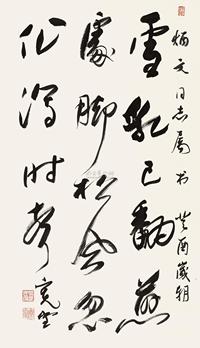 炳文同志屬书 癸酉歲朝
雪乳已翻煎
處脚松風忽
作瀉時聲 寬堂